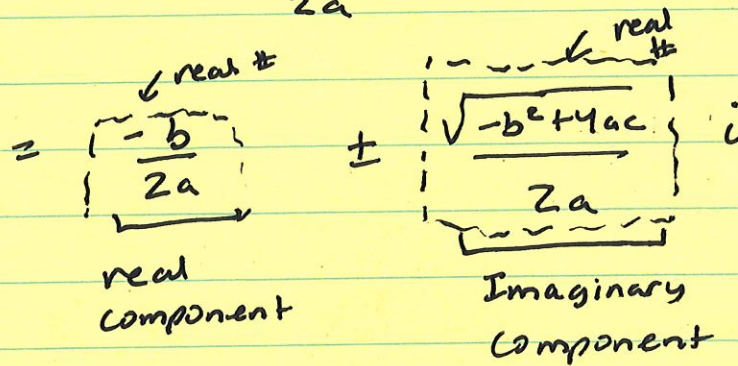 2a
real #
real #
= -b/2a ± √-b²+4ac/2a i
real
component
Imaginary
component